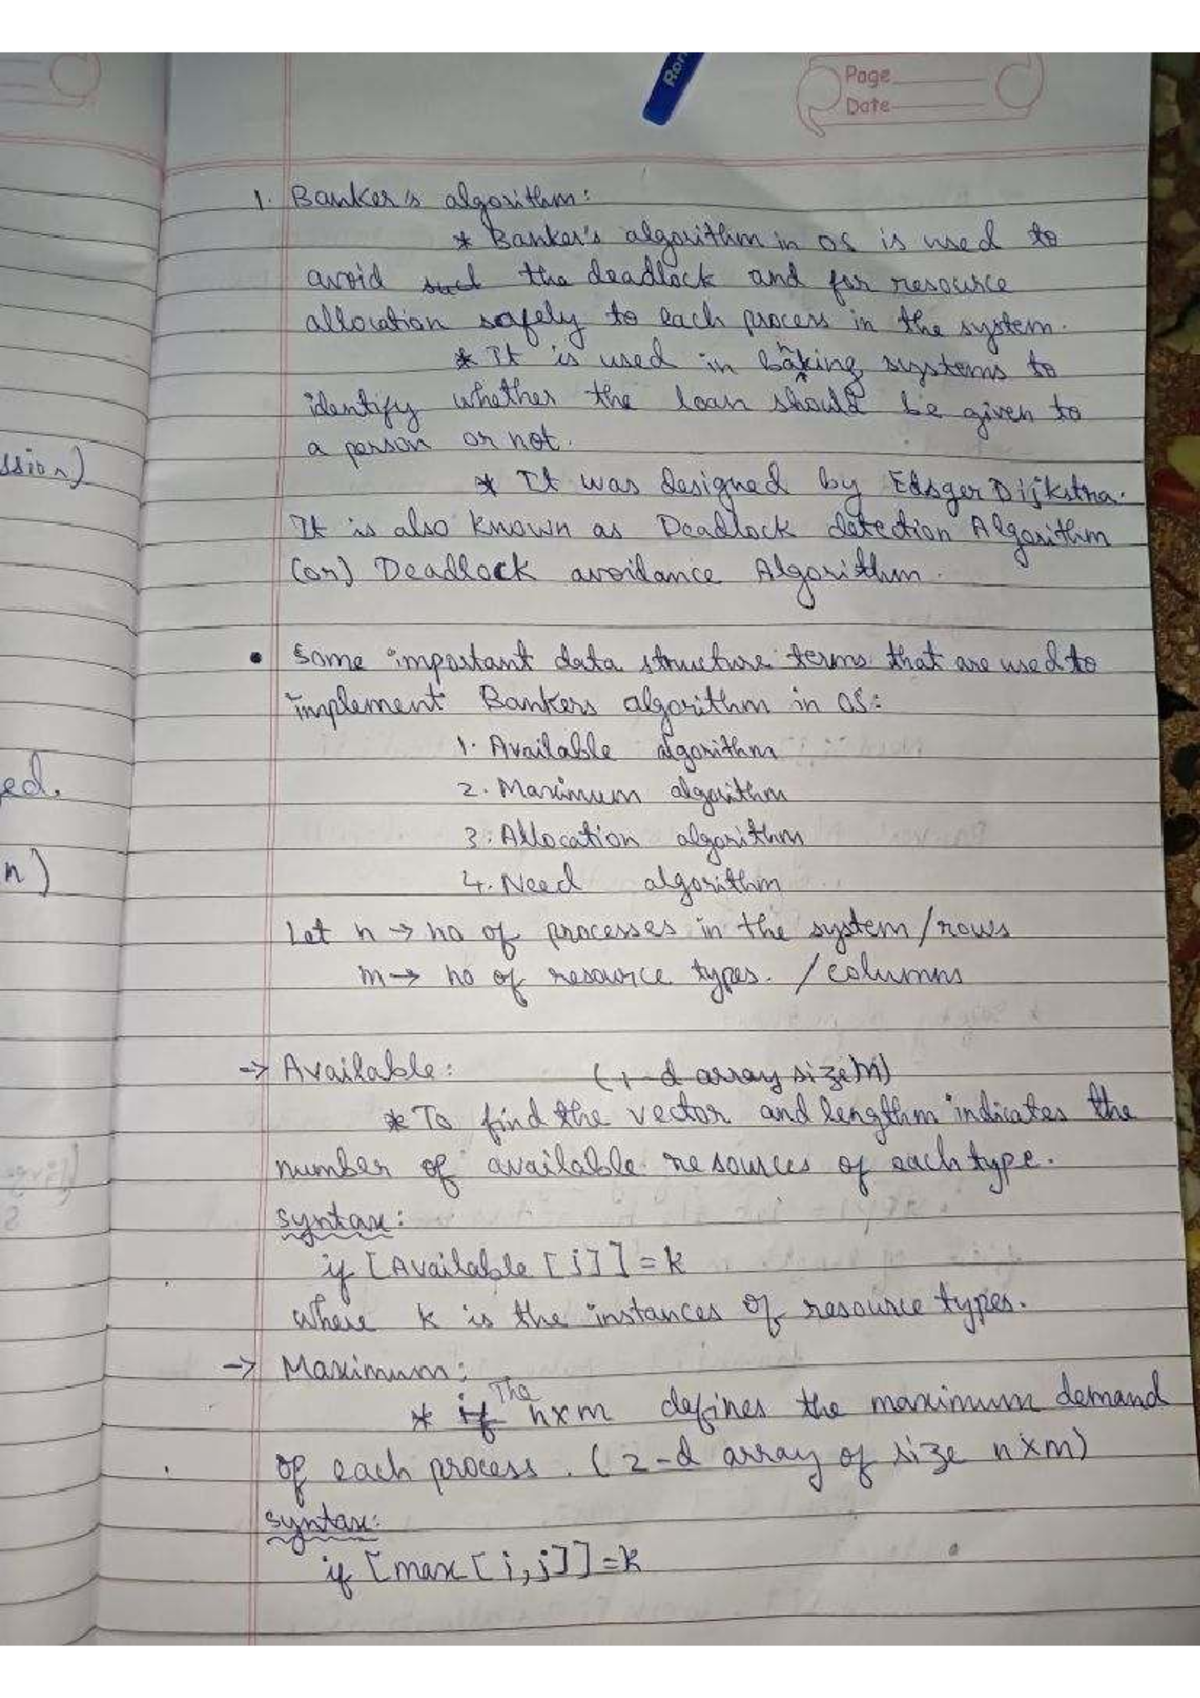 Page
Date
1. Banker's algorithm:
* Banker's algorithm in OS is used to
avoid the deadlock and for resource
allocation safely to each process in the system.
* It is used in banking systems to
identify whether the loan should be given to
a person or not.
* It was designed by Edsger Dijkstra.
It is also known as Deadlock detection Algorithm
(or) Deadlock avoidance Algorithm.
• Some important data structure terms that are used to
implement Bankers algorithm in OS:
1. Available algorithm
2. Maximum algorithm
3. Allocation algorithm
4. Need algorithm
Let n → no of processes in the system / rows
m → no of resource types. / columns
→ Available: (1-d array size m)
* To find the vector and length m indicates the
number of available resources of each type.
syntax:
if [Available [j]] = k
where k is the instances of resource types.
→ Maximum:
* The n×m defines the maximum demand
of each process. (2-d array of size n×m)
syntax:
if [max[i,j]] = k
ssion)
ed.
n)